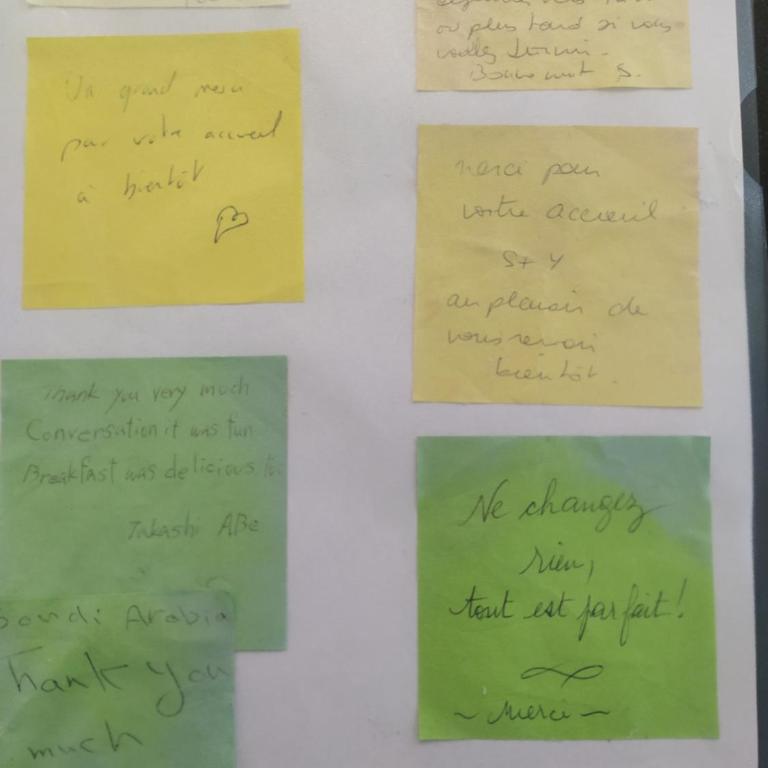 Un grand merci
pour votre accueil
à bientôt
ou plus tard si vous
Bonne nuit S.
merci pour
votre accueil
S + Y
au plaisir de
vous revoir
bientôt.
Thank you very much
Conversation it was fun
Breakfast was delicious
Takashi ABe
Arabia
Thank you
much
Ne changez
rien,
tout est parfait!
~ Merci ~